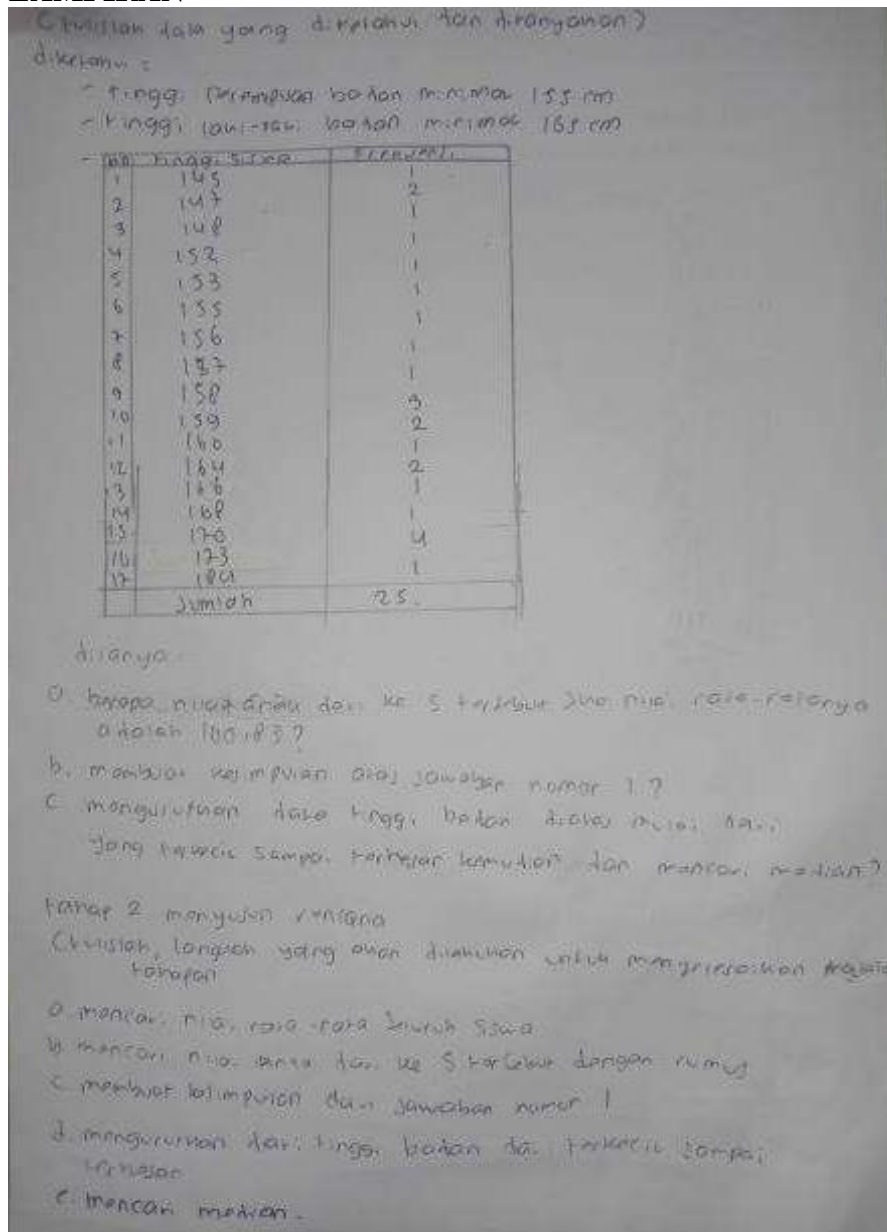 LAMPIRAN
(tulislah data yang diketahui dan ditanyakan)
diketahui :
- tinggi perempuan badan minimal 155 cm
- tinggi laki-laki badan minimal 165 cm
- no tinggi siswa Frekuensi
1 145 1
2 147 2
3 148 1
4 152 1
5 153 1
6 155 1
7 156 1
8 157 1
9 158 1
10 159 3
11 160 2
12 164 1
13 166 2
14 168 1
15 170 1
16 173 4
17 184 1
Jumlah 25.
ditanya
a. berapa nilai dari ke 5 tersebut nilai rata-ratanya
adalah 160,83?
b. membuat kesimpulan atas jawaban nomor 1.?
c mengurutkan data tinggi badan diatas mulai dari
yang terkecil sampai terbesar kemudian dan mencari median?
tahap 2 menyusun rencana
(tulislah, langkah yang akan dilakukan untuk
tahapan
a. mencari nilai rata-rata seluruh siswa
b. mencari nilai dari ke 5 tersebut dengan rumus
c. membuat kesimpulan dari jawaban nomor 1
d. mengurutkan dari tinggi badan dari terkecil sampai
terbesar
e. mencari median.